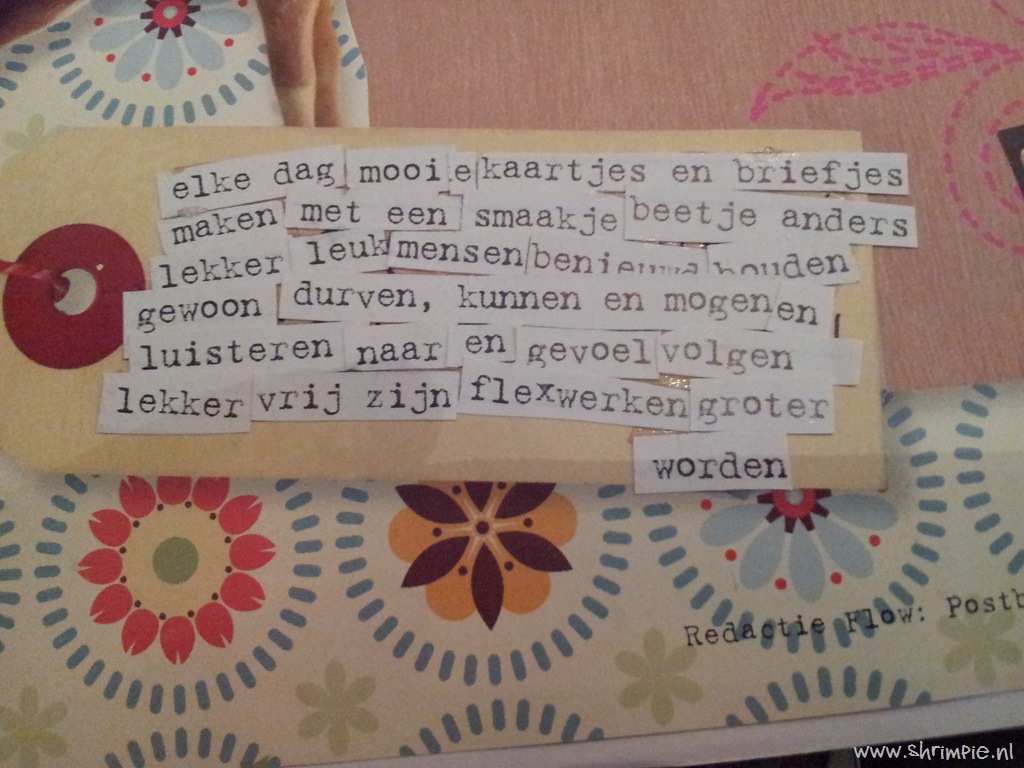 elke dag mooie kaartjes en briefjes
maken met een smaakje beetje anders
lekker leuk mensen benieuwd houden
gewoon durven, kunnen en mogen en
luisteren naar en gevoel volgen
lekker vrij zijn flexwerken groter
worden
Redactie Flow: Postb
www.shrimpie.nl